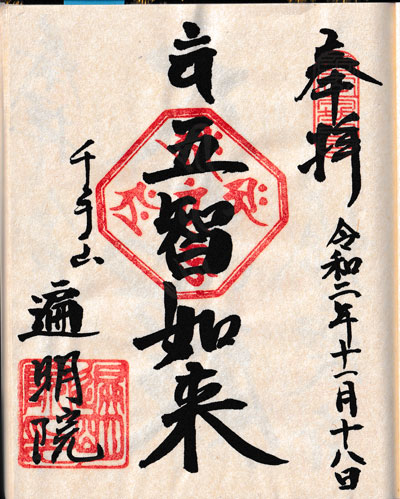 奉拝
令和二年十一月十八日
五智如来
千手山
遍明院